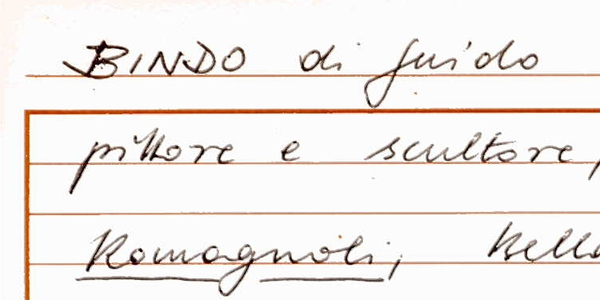 BINDO di Guido
pittore e scultore,
Romagnoli, Belle